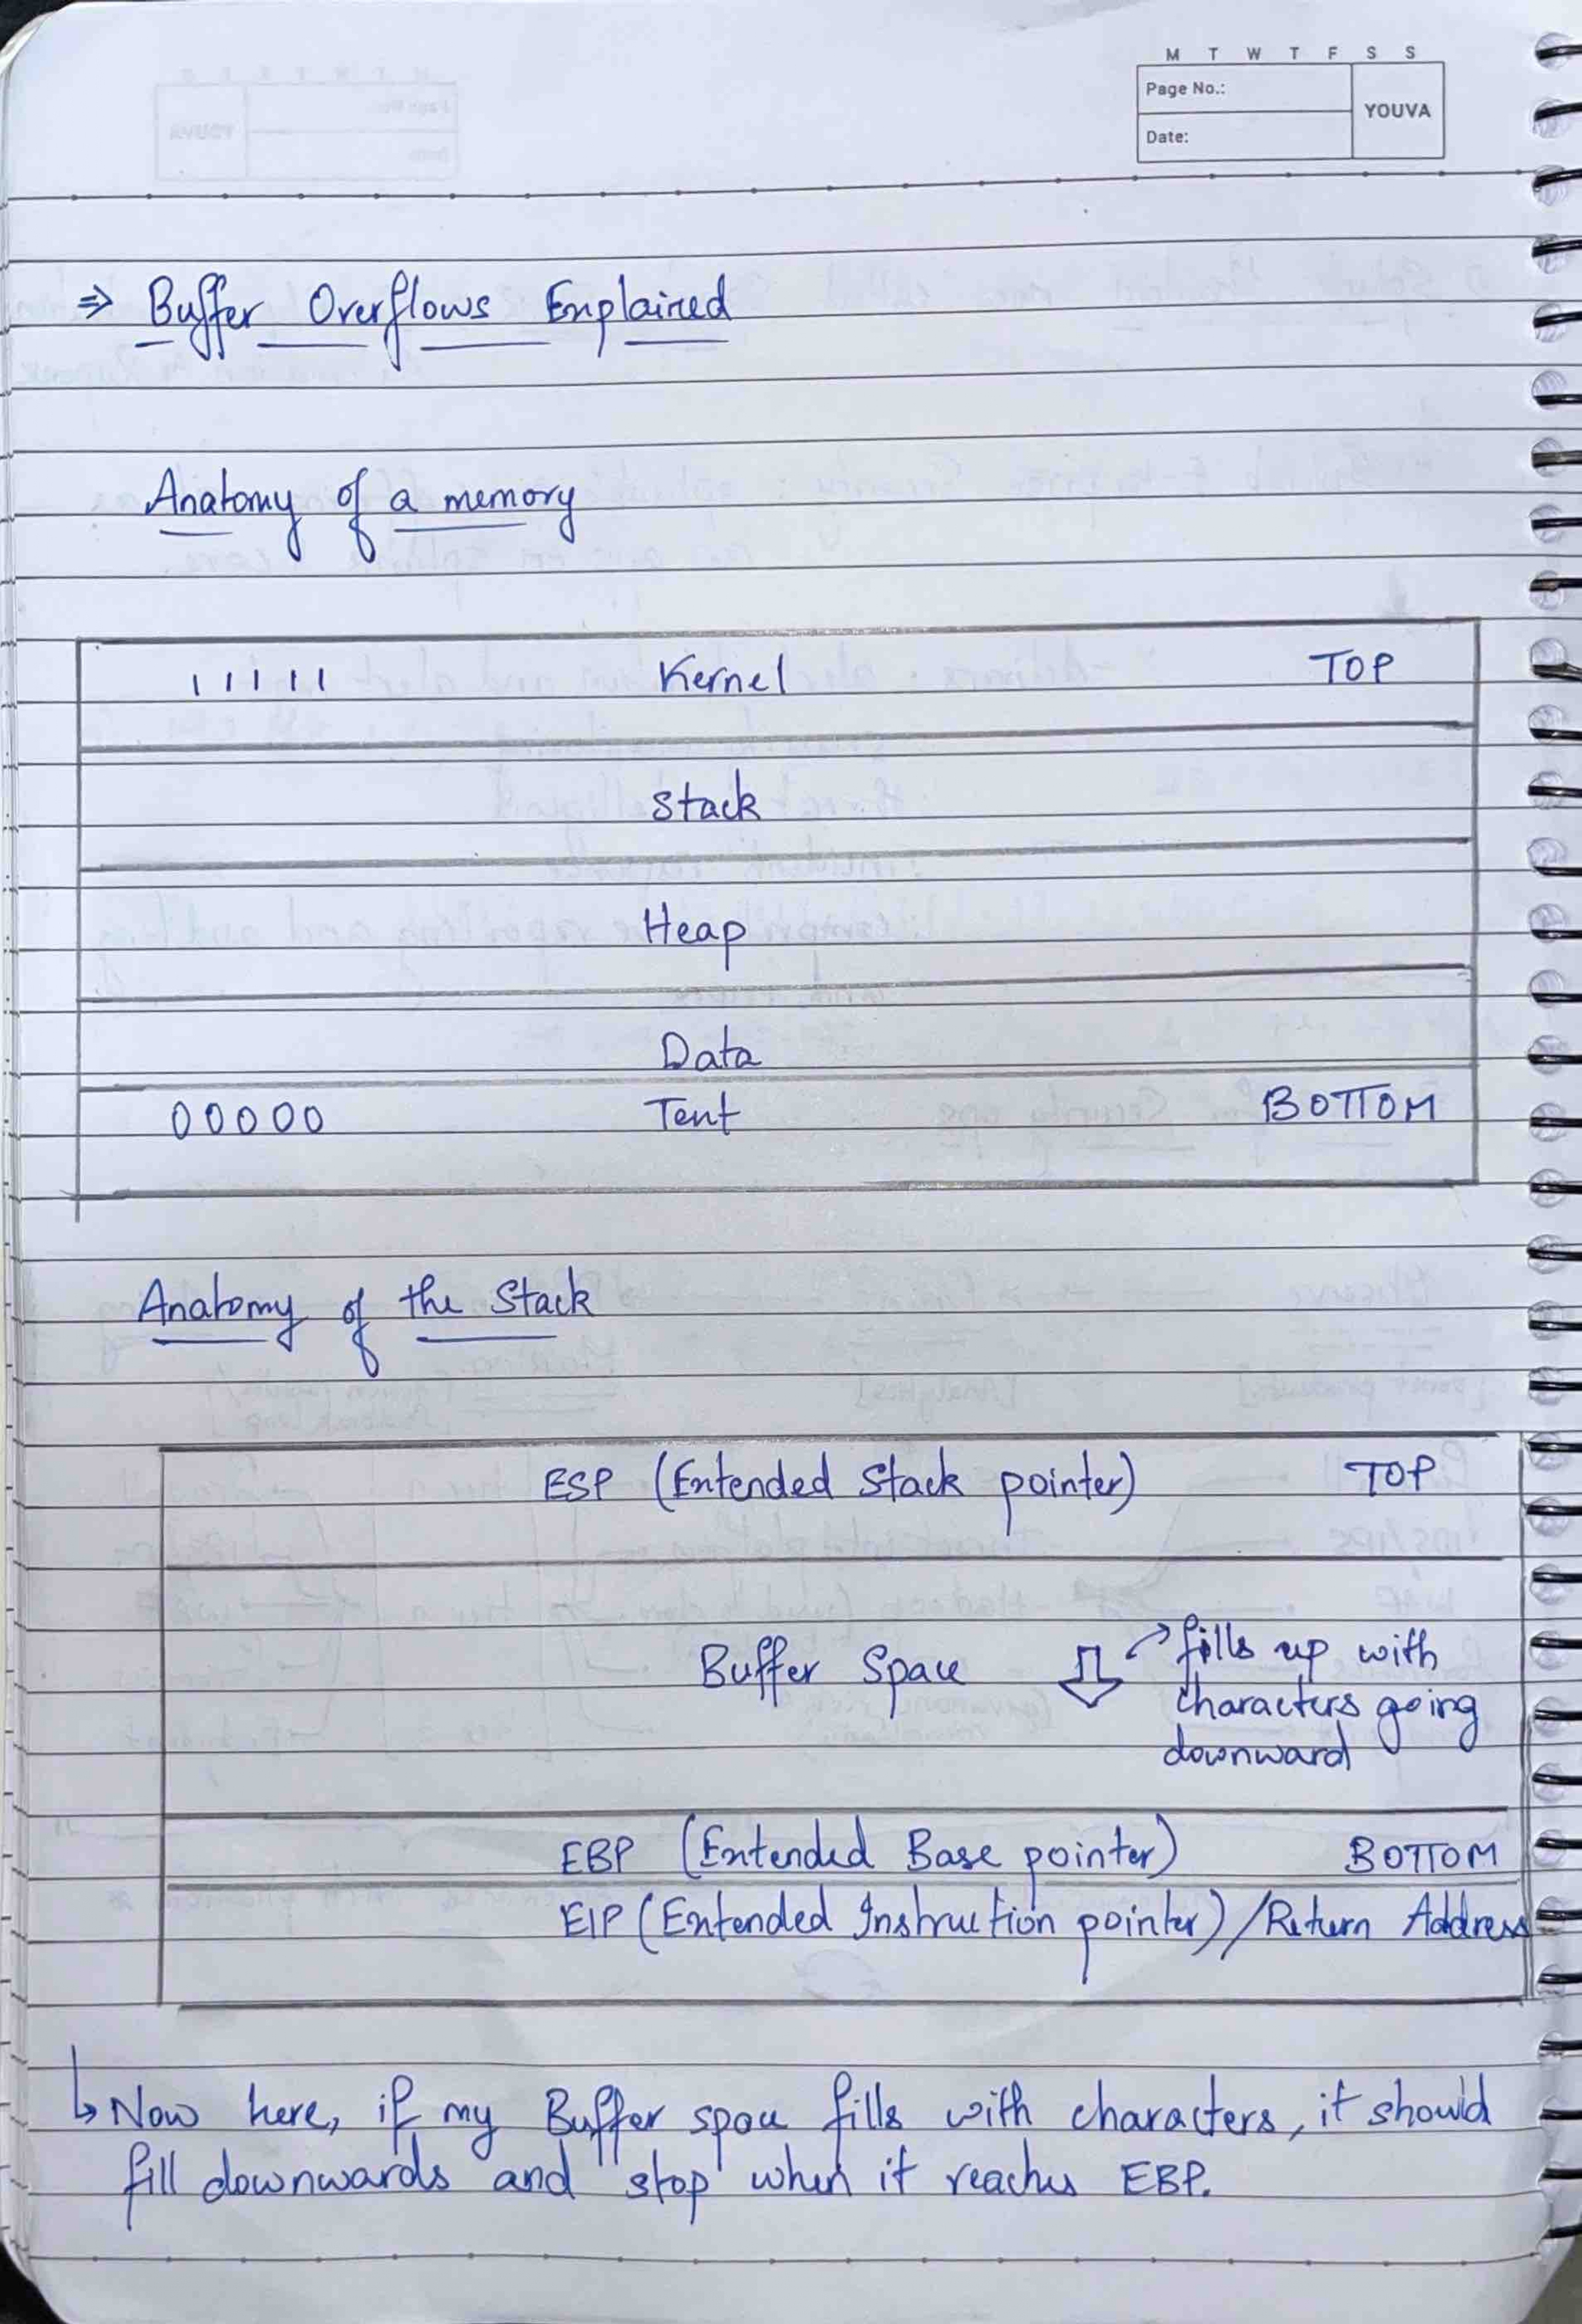 M T W T F S S
Page No.:
YOUVA
Date:
⇒ Buffer Overflows Explained
Anatomy of a memory
11111 Kernel TOP
Stack
Heap
Data
00000 Text BOTTOM
Anatomy of the Stack
ESP (Extended Stack pointer) TOP
Buffer Space ⇩ → fills up with
characters going
downward
EBP (Extended Base pointer) BOTTOM
EIP (Extended Instruction pointer) / Return Address
↳ Now here, if my Buffer space fills with characters, it should
fill downwards and "stop" when it reaches EBP.